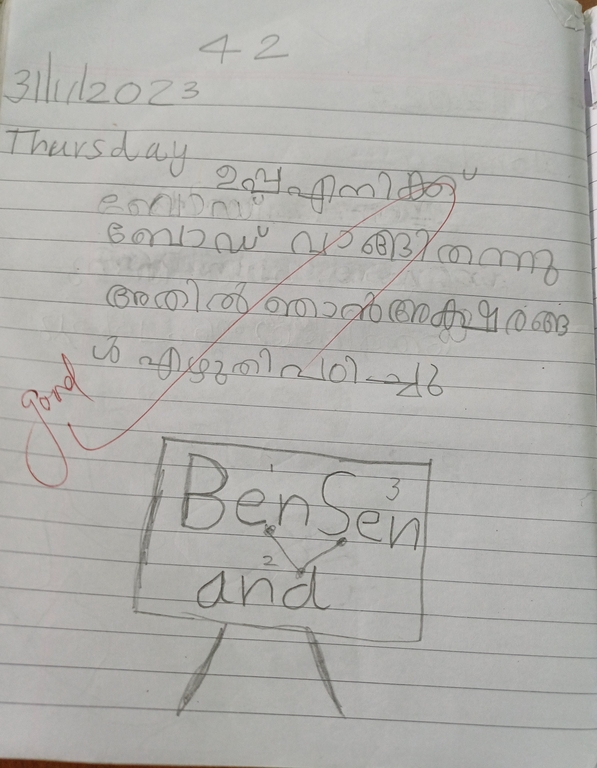 42
31/11/2023
Thursday
ഉപ്പ എനിക്ക്
ബോഡ്
ബോഡ് വാങ്ങിതന്നു
അതിൽ ഞാൻ അക്ഷരങ്ങ
ൾ എഴുതി പഠിച്ചു
good
1 3
BenSen
2
and